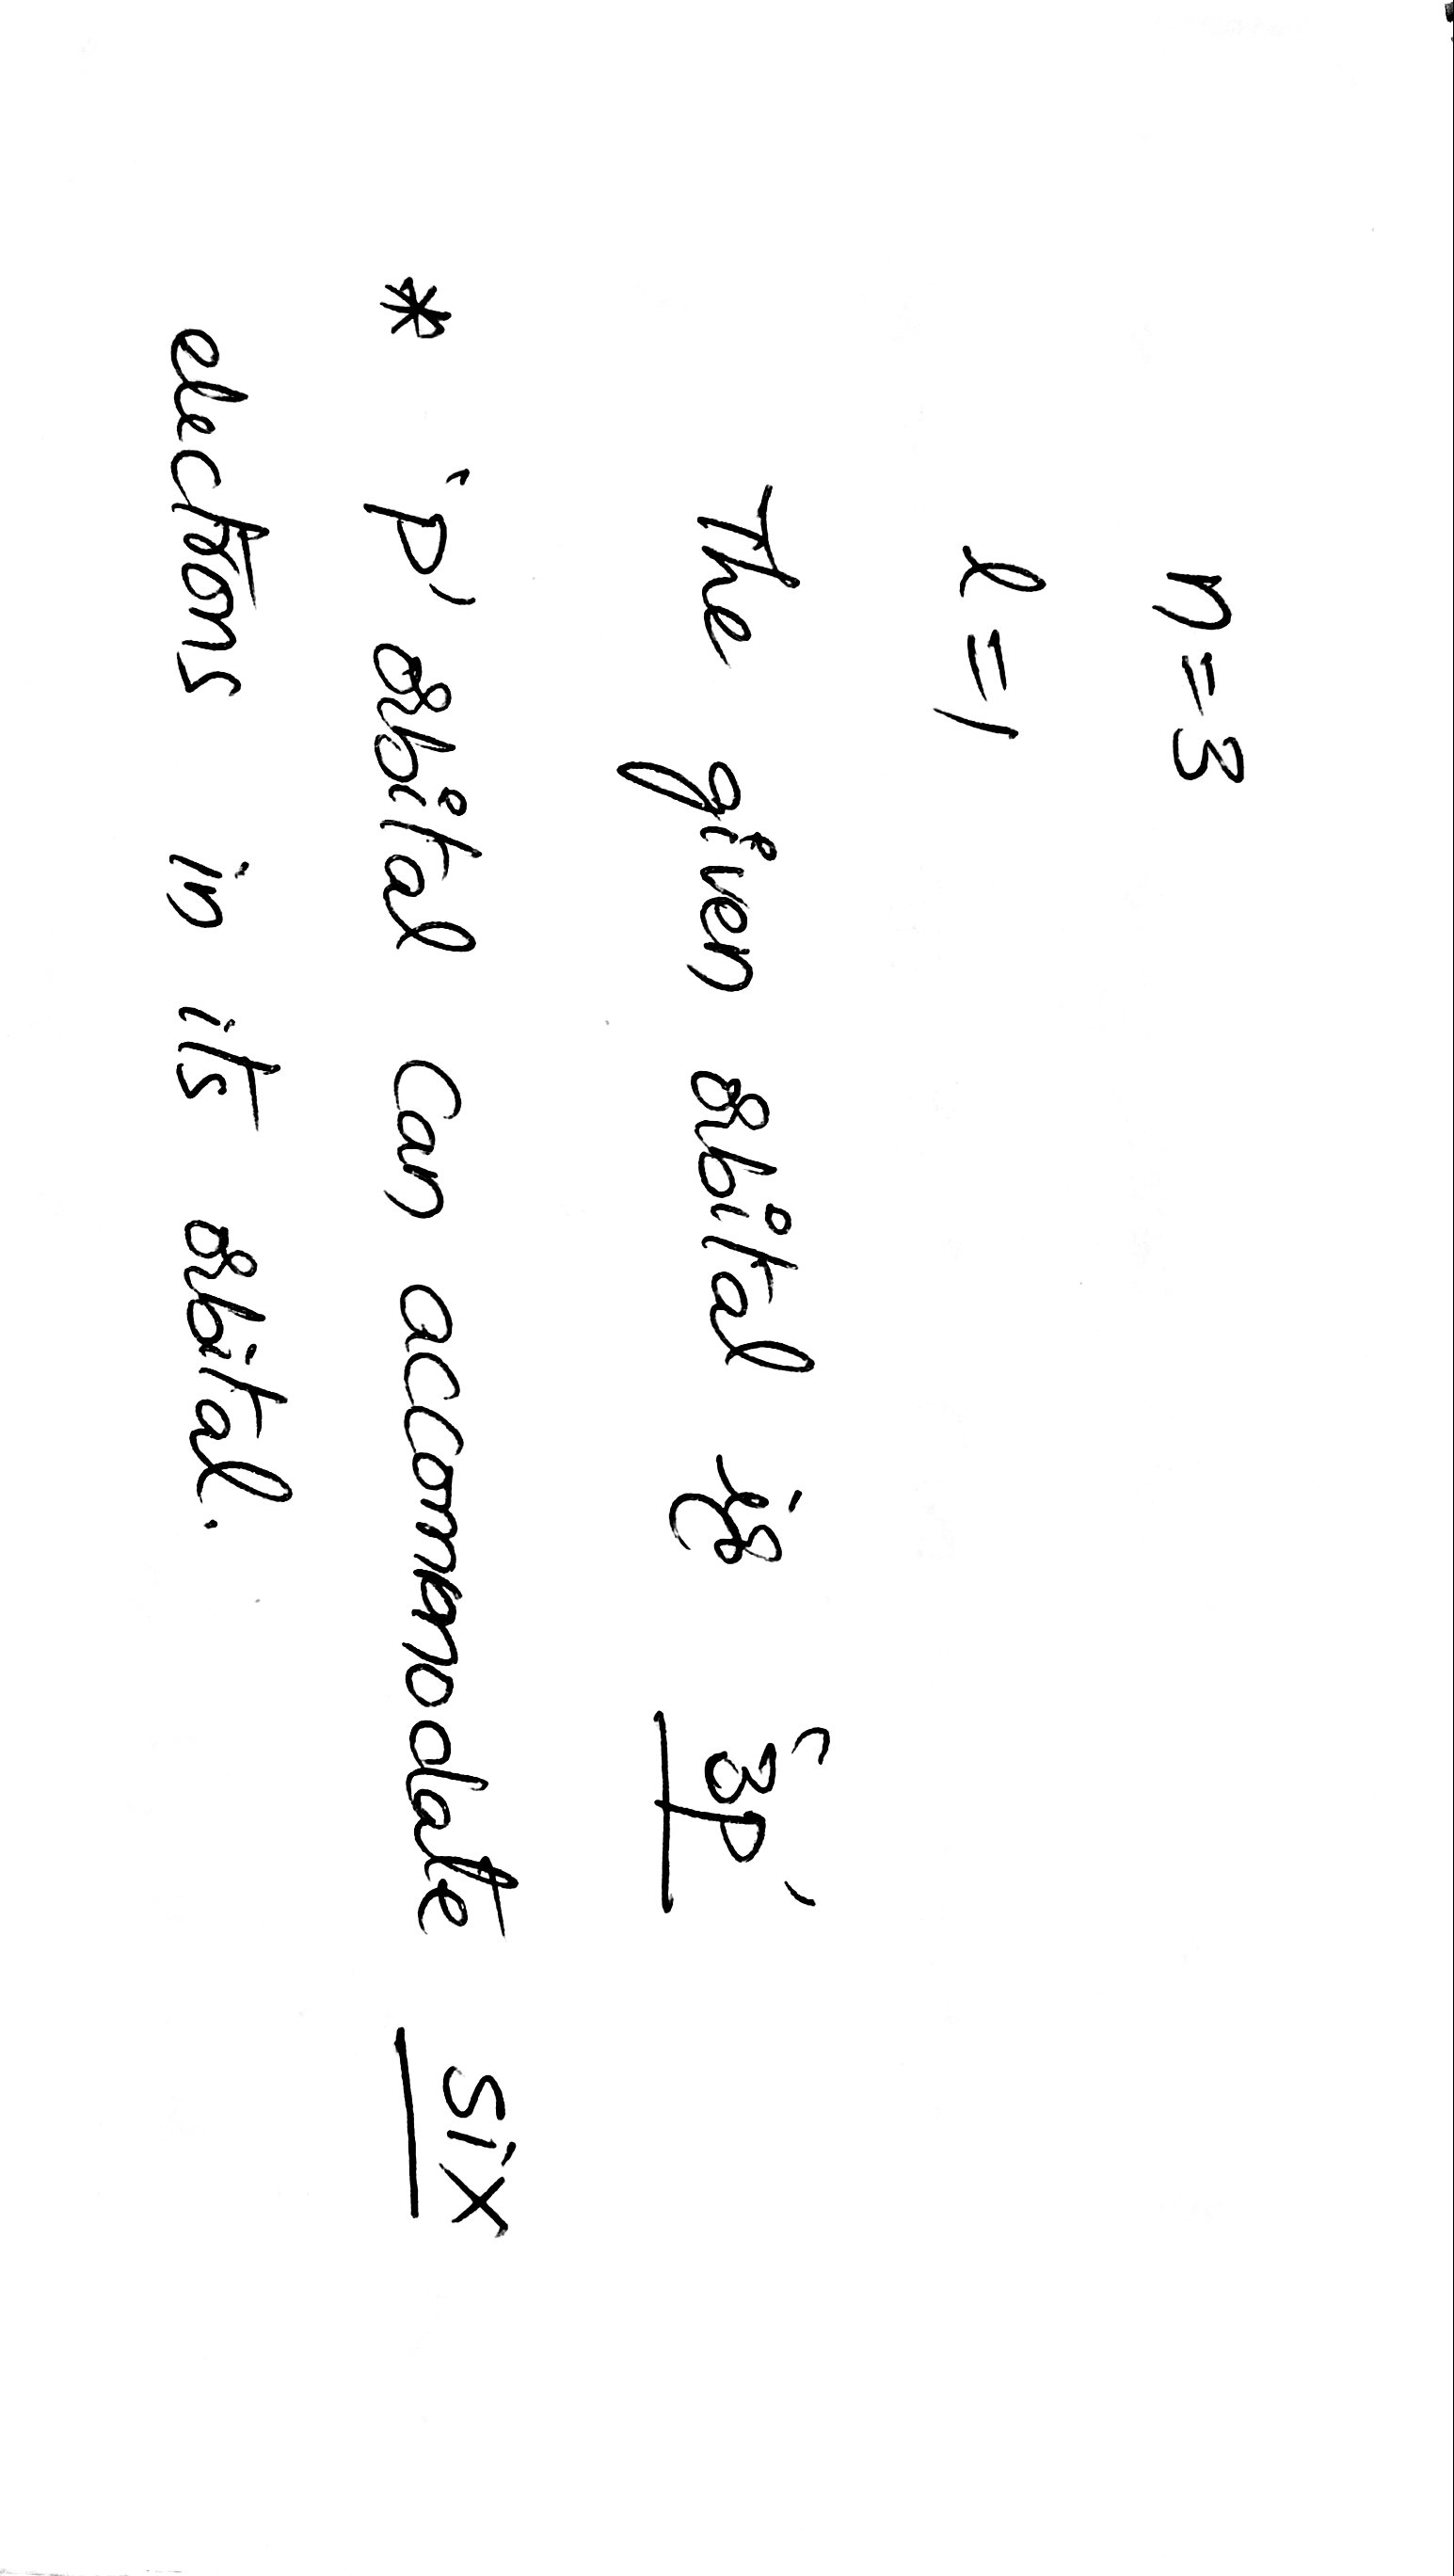 n = 3
l = 1
The given orbital is '3P'
* 'P' orbital can accommodate six
electrons in its orbital.